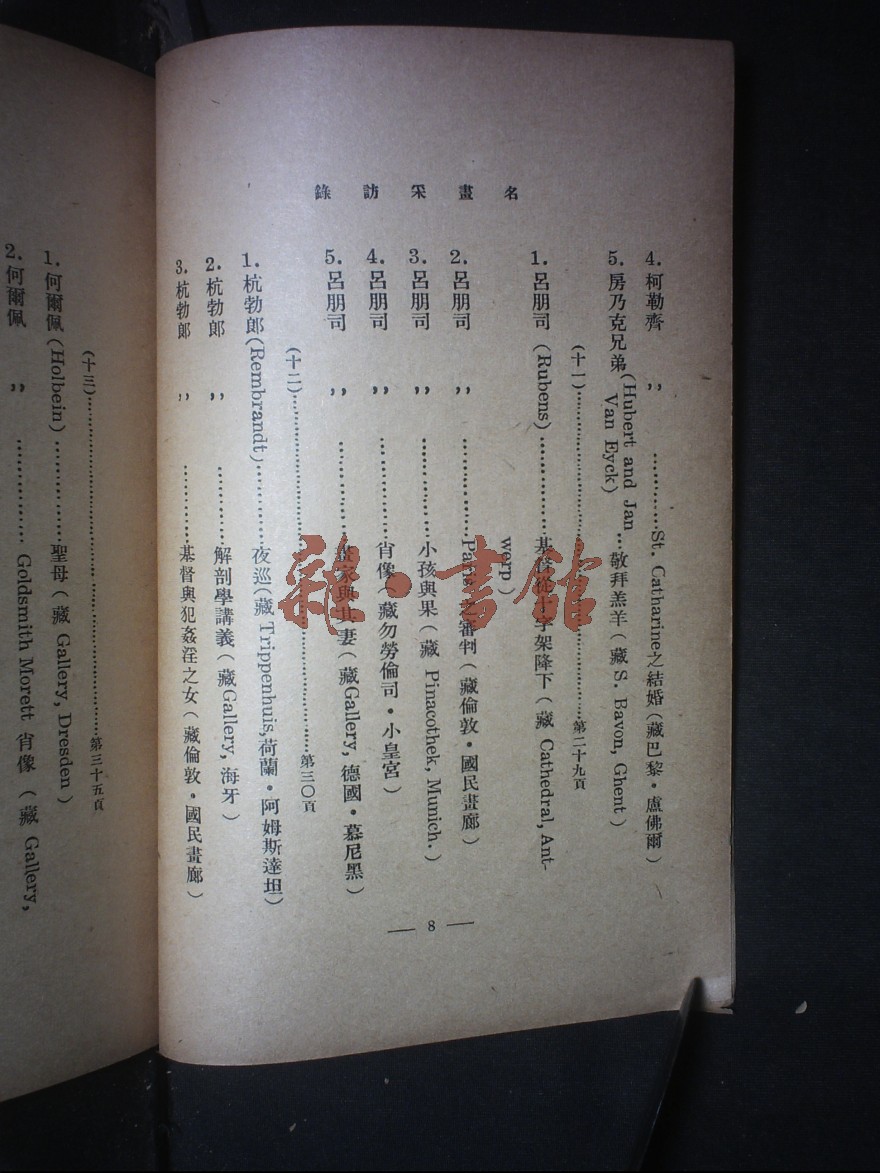 名畫采訪錄
4. 柯勒齊 ,, …………St. Catharine之結婚(藏巴黎・盧佛爾)
5. 房乃克兄弟(Hubert and Jan Van Eyck)…敬拜羔羊(藏S. Bavon, Ghent)
(十一)……………………………第二十九頁
1. 呂朋司(Rubens)…………基督從十字架降下(藏 Cathedral, Ant-
werp)
2. 呂朋司 ,, …………Paris 之審判(藏倫敦・國民畫廊)
3. 呂朋司 ,, …………小孩與果(藏 Pinacothek, Munich.)
4. 呂朋司 ,, …………肖像(藏勿勞倫司・小皇宮)
5. 呂朋司 ,, …………畫家與其妻(藏Gallery, 德國・慕尼黑)
(十二)……………………………第三〇頁
1. 杭勃郎(Rembrandt)…………夜巡(藏Trippenhuis,荷蘭・阿姆斯達坦)
2. 杭勃郎 ,, …………解剖學講義(藏Gallery, 海牙)
3. 杭勃郎 ,, …………基督與犯姦淫之女(藏倫敦・國民畫廊)
— 8 —
(十三)……………………………第三十五頁
1. 何爾佩(Holbein)……………聖母(藏 Gallery, Dresden)
2. 何爾佩 ,, ……………Goldsmith Morett 肖像(藏 Gallery,
雜・書館